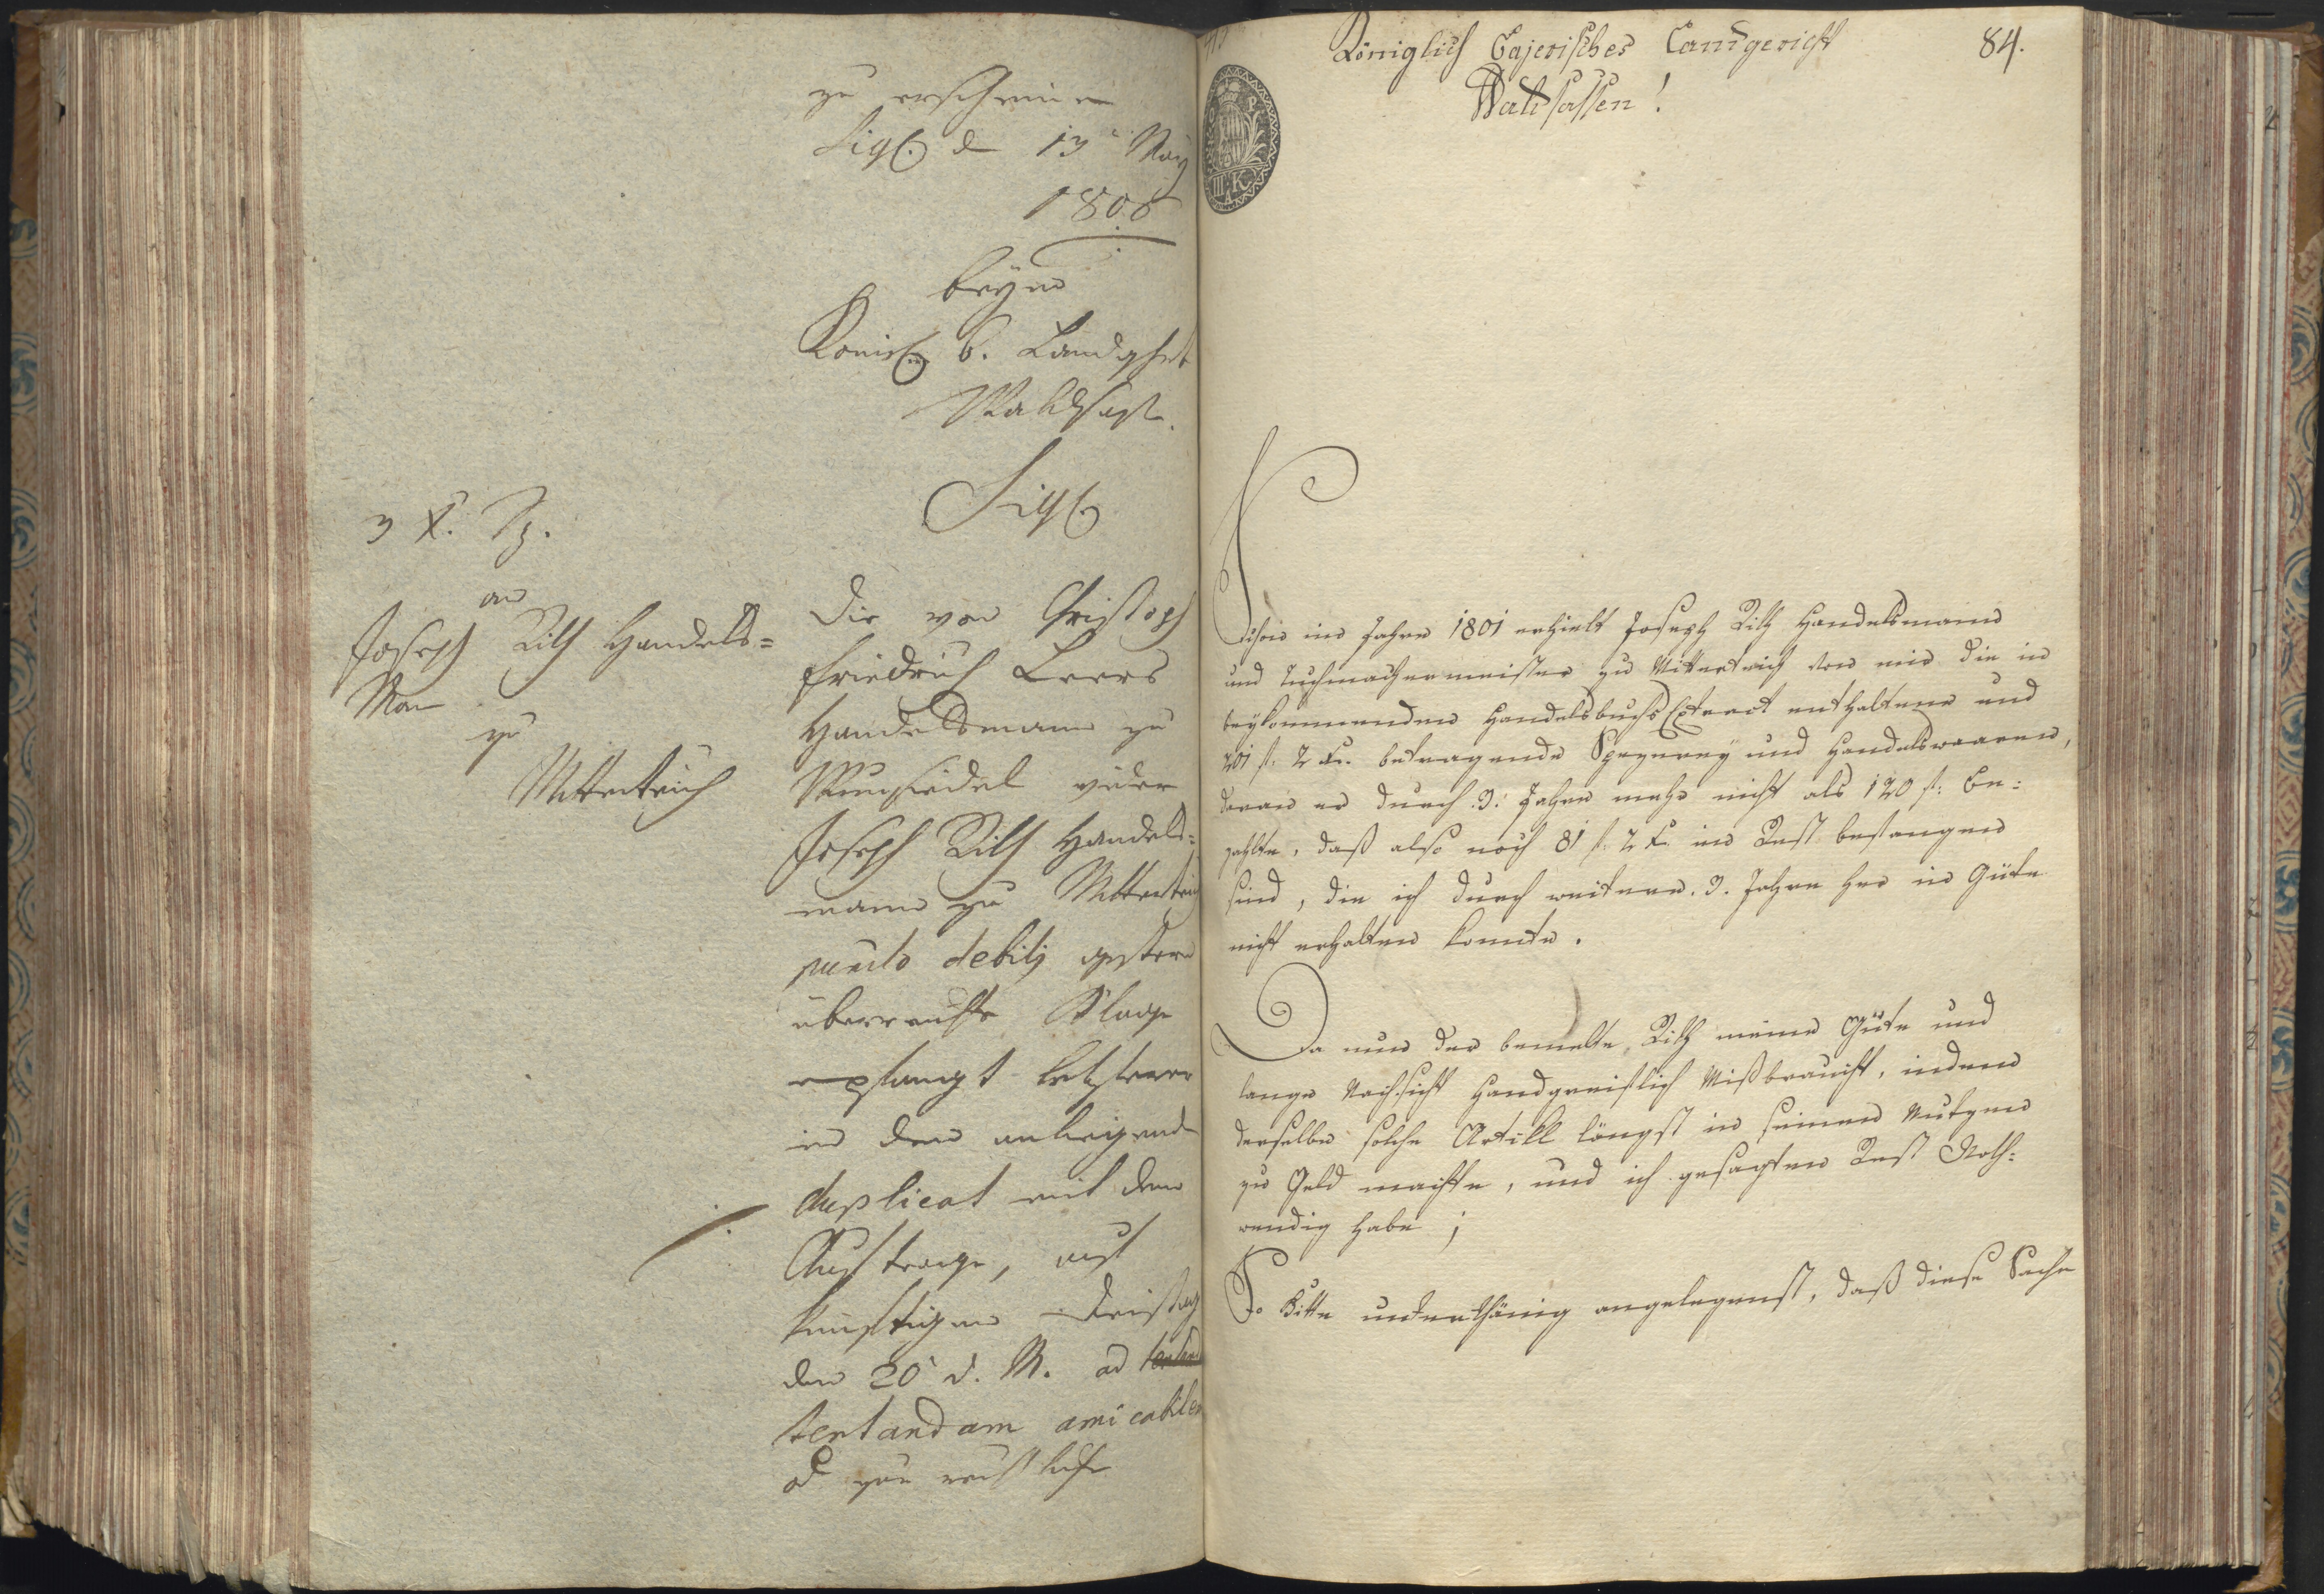 zu erscheinen
Sigl. d 13t. May
1808
beym
Königl. b. Landghrt
Waldsass.
Sigl.
3 X. Sp.
an
Joseph Rilh Handels=
Man
zu
Mitterteich
Die von Christoph
Friedrich Leers
Handelsmann zu
Wunsiedel wider
Joseph Rilh Handels=
mann zu Mitterteich
puncto debitj gestern
überreichte Klage
empfangt letzterer
in dem anliegend
duplicat mit dem
Auftrage, auf
künftigen Freitag
den 20t d. M. ad
tentandam amicabilem
od zur rechtliche
Königlich Bajerisches Landgericht
84.
Waldsassen!
III K
Schon im Jahre 1801 erhielt Joseph Rilh Handelsmann
und Tuchmachermeister zu Mitterteich von mir die in
beykommenden Handelsbuchs Extract enthaltene und
201 f. 2 Kr. betragende Spezerey und Handelswaaren,
daran er durch 3. Jahre mehr nicht als 120 f. be=
zahlte, daß also noch 81 f. 2 Kr. im Rest bestangen
sind, die ich durch weitere 3. Jahre her in Güte
nicht erhalten konnte.
Da nun der bemelte Rilh meine Güte und
lange Nachsicht handgreiflich mißbraucht, indem
derselbe solche Artikl längst in seinen Nutzen
zu Geld machte, und ich gesagten Rest Noth=
wendig habe;
So bitte unterthänig angelegenst, daß diese Sache